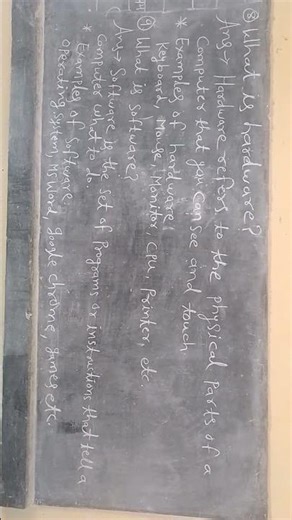 ⑧ What is hardware?
Ans→ Hardware refers to the physical Parts of a
Computer that you can see and touch
* Examples of hardware:
Keyboard, Mouse, Monitor, CPU, Printer, etc.
⑨ What is Software?
Ans→ Software is the set of Programs or instructions that tell a
Computer what to do.
* Examples of Software:
Operating System, Ms Word, google chrome, games etc.